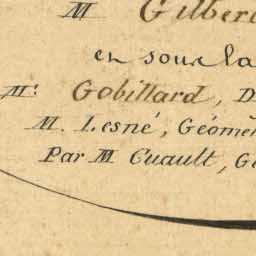 M Gilber
en sous la
Mr. Gobillard, D
M. Lesné, Géomè
Par M Cuault, Gé